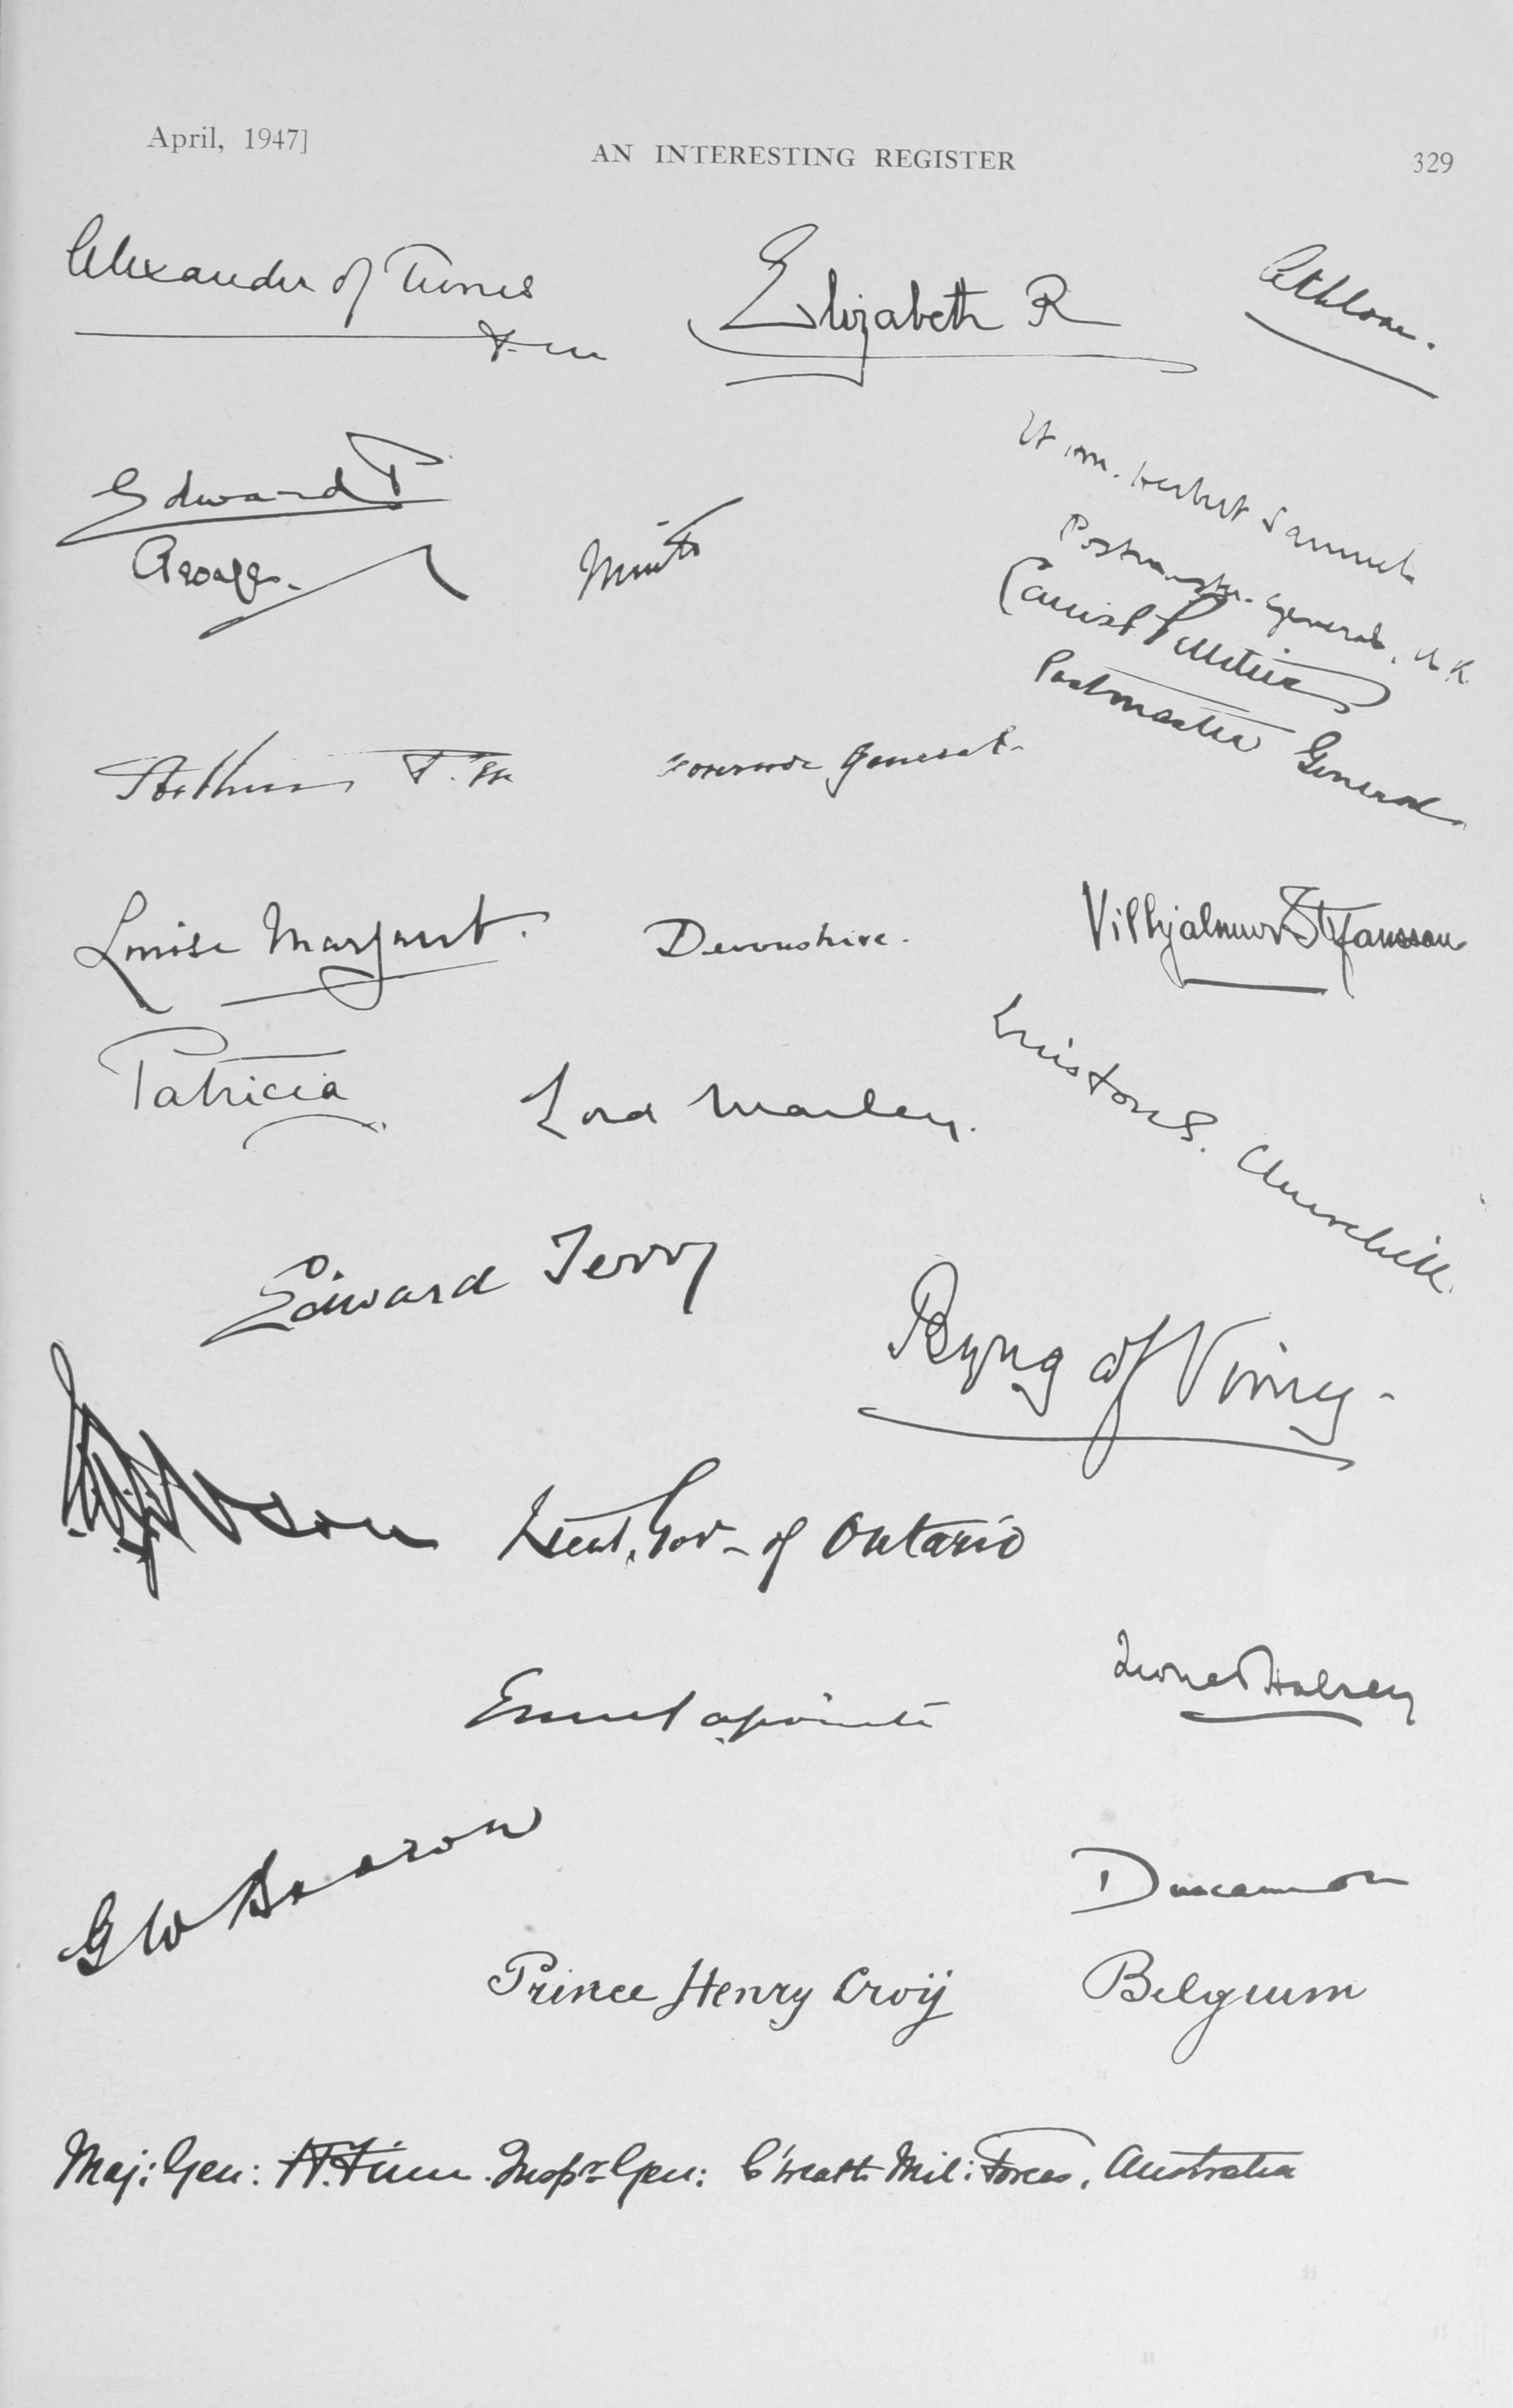 April, 1947]
AN INTERESTING REGISTER
329
Alexander of Tunis
F.M
Elizabeth R
Athlone.
Edward P
George.
Minto
Rt Hon. Herbert Samuel
Postmaster-General, U K
Louis Pelletier
Postmaster General
Arthur F.M
Governor General
Louise Margaret.
Devonshire.
Vilhjalmur Stefansson
Patricia
Lord Marley.
Winston S. Churchill
Edward Terry
Byng of Vimy
Lieut. Gov- of Ontario
Ernest Lapointe
Lionel Halsey
G W
Duncannon
Prince Henry Croij
Belgium
Maj: Gen: H. Finn. Inspr Gen: C'wealth Mil: Forces, Australia